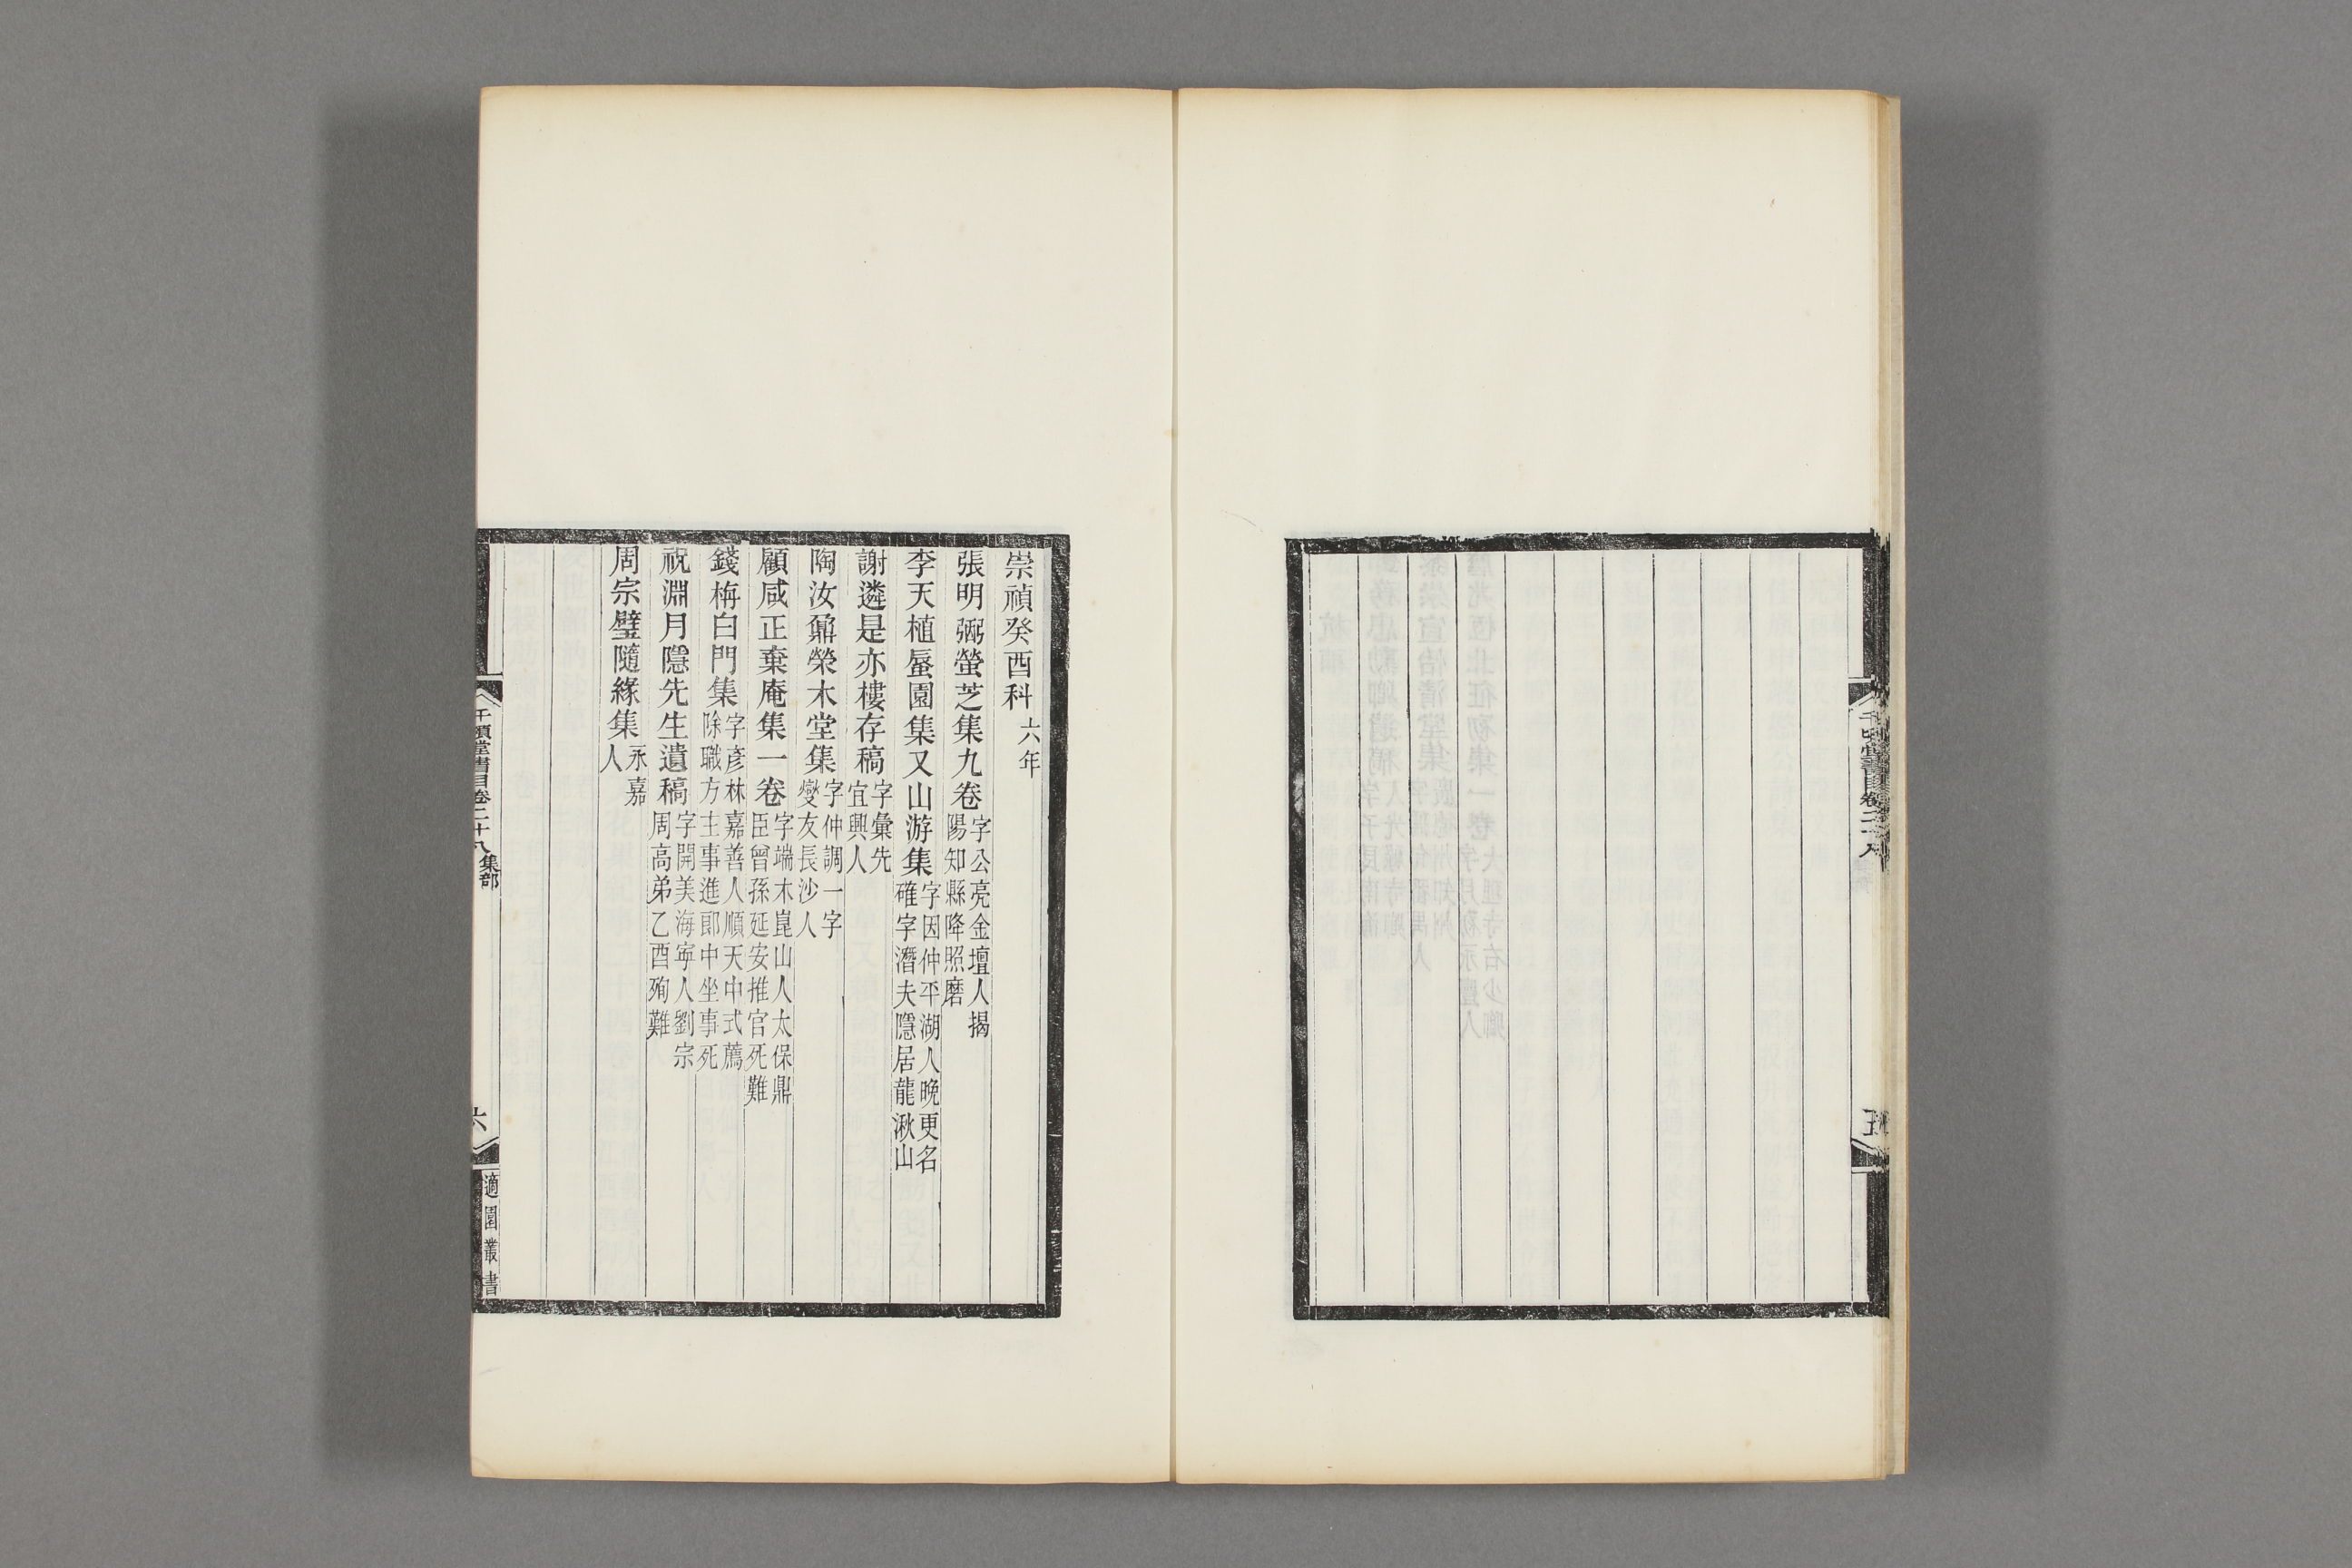 崇禎癸酉科六年
張明弼螢芝集九卷字公亮金壇人揭陽知縣降照磨
李天植蜃園集又山游集字因仲平湖人晚更名確字潛夫隱居龍湫山
謝遴是亦樓存稿字彙先宜興人
陶汝鼐榮木堂集字仲調一字燮友長沙人
顧咸正棄庵集一卷字端木崑山人太保鼎臣曾孫延安推官死難
錢栴白門集字彥林嘉善人順天中式薦除職方主事進郎中坐事死
祝淵月隱先生遺稿字開美海寧人劉宗周高弟乙酉殉難
周宗璧隨緣集永嘉人
千頃堂書目卷二十八集部
六
適園叢書